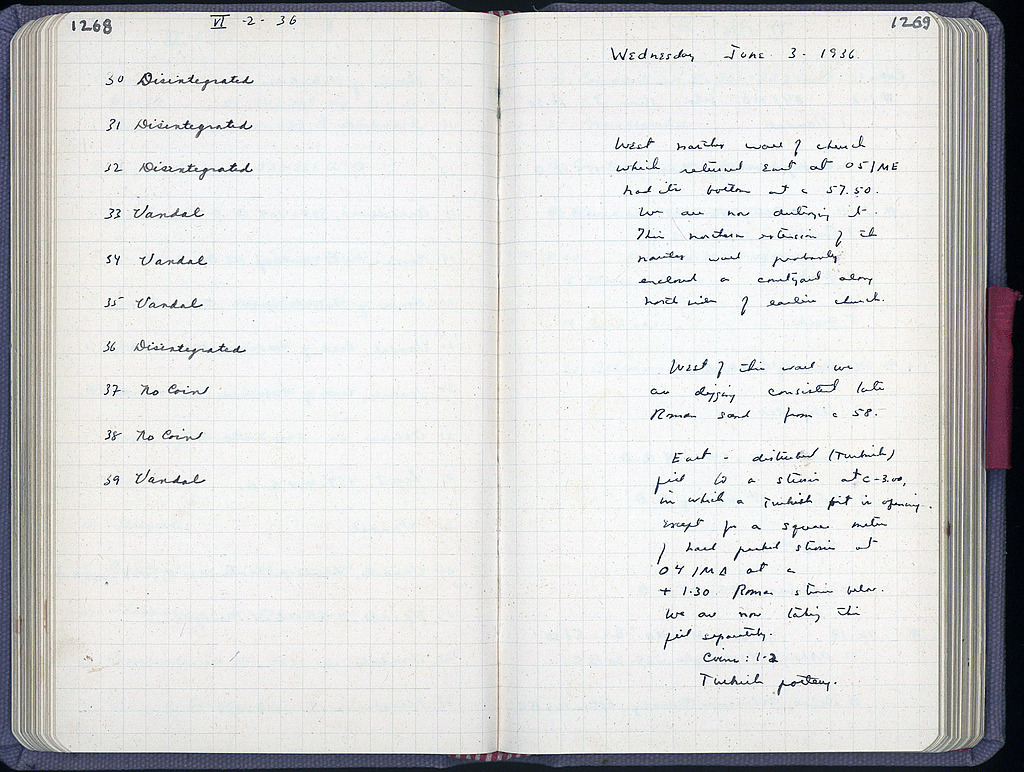 1268
VI -2- 36
30 Disintegrated
31 Disintegrated
32 Disintegrated
33 Vandal
34 Vandal
35 Vandal
36 Disintegrated
37 No Coin
38 No Coin
39 Vandal
1269
Wednesday June 3 - 1936.
West narthex wall of church
which returned East at 051/ME
had its bottom at c 57.50.
We are now destroying it.
This northern extension of the
narthex wall probably
enclosed a courtyard along
north side of earlier church.
West of this wall we
are digging consistent late
Roman sand from c 58.
East - disturbed (Turkish)
fill to a stosis at c -3.00,
in which a Turkish pit is opening.
Except for a square meter
of hard packed stosis at
04/MΔ at c
+ 1.30. Roman stosis below.
We are now taking this
fill separately.
Coins: 1-2
Turkish pottery.